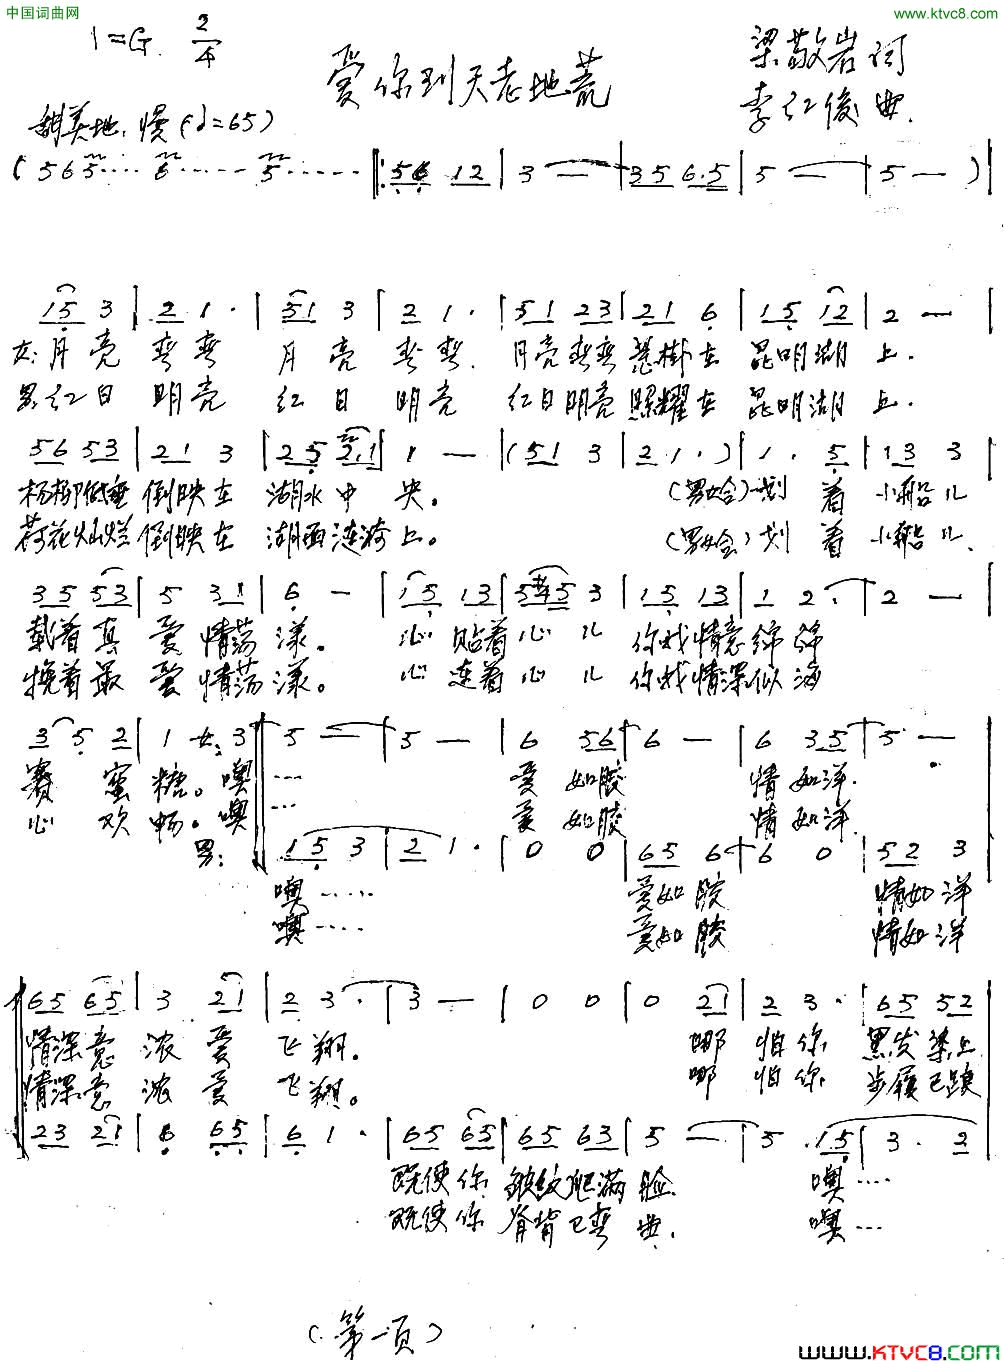 中国词曲网
www.ktvc8.com
1=G 2/4
爱你到天老地荒
梁敬岩 词
李红俊 曲.
甜美地、慢 (♩=65)
(5 6 5···· 6····· 5······ |: 5 6 1 2 | 3 — | 3 5 6.5 | 5 — | 5 — ) |
1 5 3 | 2 1 · | 5 1 3 | 2 1 · | 5 1 2 3 | 2 1 6 | 1 5 1 2 | 2 — |
女:月亮 弯弯 月亮 弯弯. 月亮弯弯 悬掛在 昆明湖上.
男:红日 明亮 红日 明亮 红日明亮 照耀在 昆明湖上.
5 6 5 3 | 2 1 3 | 2 5 2.1 | 1 — | (5 1 3 | 2 1 · ) | 1 · 5 | 1 3 3 |
杨柳低垂 倒映在 湖水中央。 (男女合)一划着小船儿
荷花灿烂 倒映在 湖面涟漪上。 (男女合)划着小船儿.
3 5 5 3 | 5 3 1 | 6 — | 1 5 1 3 | 5 #4 5 3 | 1 5 1 3 | 1 2 · | 2 — |
载着真爱情荡漾。 心贴着心儿 你我情意绵绵
挽着最爱情荡漾。 心连着心儿 你我情深似海
3 5 2 | 1 女:3 | 5 — | 5 — | 6 5 6 | 6 — | 6 3 5 | 5 — |
赛蜜糖。噢 ··· 爱如胶 情如洋.
心欢畅。噢 ··· 爱如胶 情如洋.
男: 1 5 3 | 2 1 · | 0 0 | 6 5 6 | 6 0 | 5 2 3 |
噢···· 爱如胶 情如洋
噢···· 爱如胶 情如洋
6 5 6 5 | 3 2 1 | 2 3 · | 3 — | 0 0 | 0 2 1 | 2 3 · | 6 5 5 2 |
情深意浓爱飞翔。 哪怕你 黑发染上
情深意浓爱飞翔。 哪怕你 步履已踉
2 3 2 1 | 6 6 5 | 6 1 · | 6 5 6 5 | 6 5 6 3 | 5 — | 5 · 1 5 | 3 · 2 |
既使你 皱纹爬满脸. 噢····
既使你 脊背已弯曲. 噢···
(第一页)
www.KTVC8.com